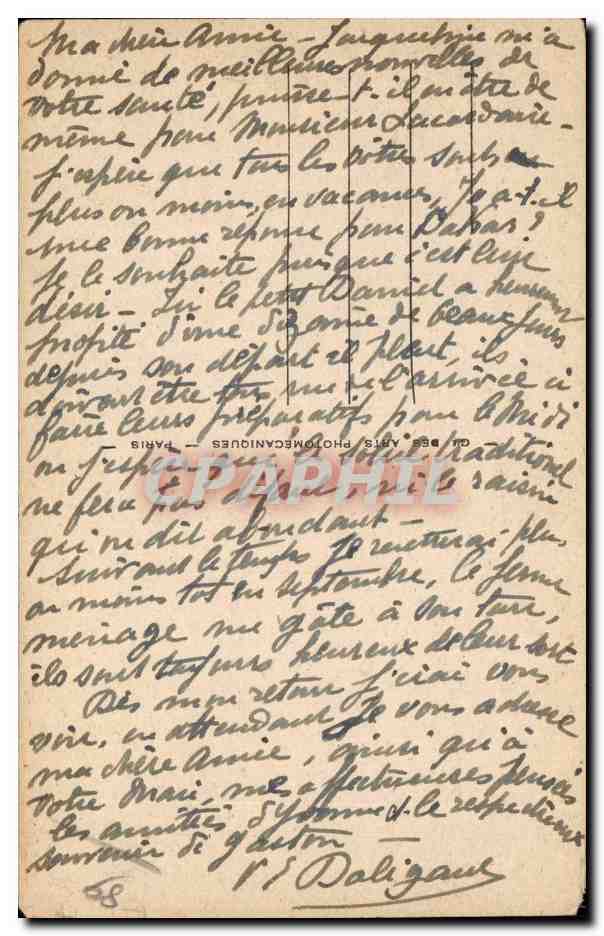 Ma chère Amie - Jacqueline m'a
donné de meilleures nouvelles de
votre santé, puisse-t-il en être de
même pour Monsieur Lacordaire -
J'espère que tous les vôtres sont
plus ou moins en vacances, Y a-t-il
une bonne réponse pour Dakar?
Je le souhaite puisque c'est leur
désir - Ici le petit Daniel a
profité d'une dizaine de beaux jours
depuis son départ il pleut, ils
doivent être à
faire leurs préparatifs pour le Midi
G. DES ARTS PHOTOMÉCANIQUES — PARIS
ou j'espère que le soleil traditionel
ne fera pas défaut, ni le raisin
qu'on dit abondant -
Suivant le temps je rentrerai plus
ou moins tot en septembre, le jeune
ménage me gâte à son tour,
ils sont toujours heureux de leur sort
Dès mon retour j'irai vous
voir, en attendant je vous adresse
ma chère Amie, ainsi qu'à
votre Mari, mes affectueuses pensées
les amitiés d'Yvonne & le respectueux
souvenir de Gaston -
Doligaut
68
CPAPHIL